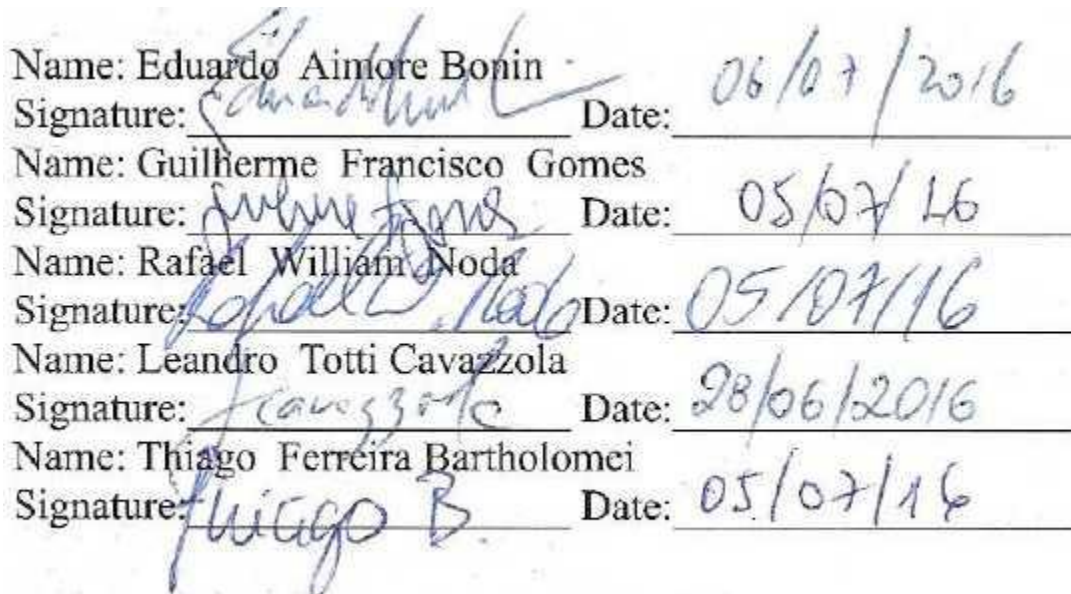 Name: Eduardo Aimore Bonin
Signature: Date: 06/07/2016
Name: Guilherme Francisco Gomes
Signature: Date: 05/07/16
Name: Rafael William Noda
Signature: Date: 05/07/16
Name: Leandro Totti Cavazzola
Signature: Date: 28/06/2016
Name: Thiago Ferreira Bartholomei
Signature: Thiago B. Date: 05/07/16